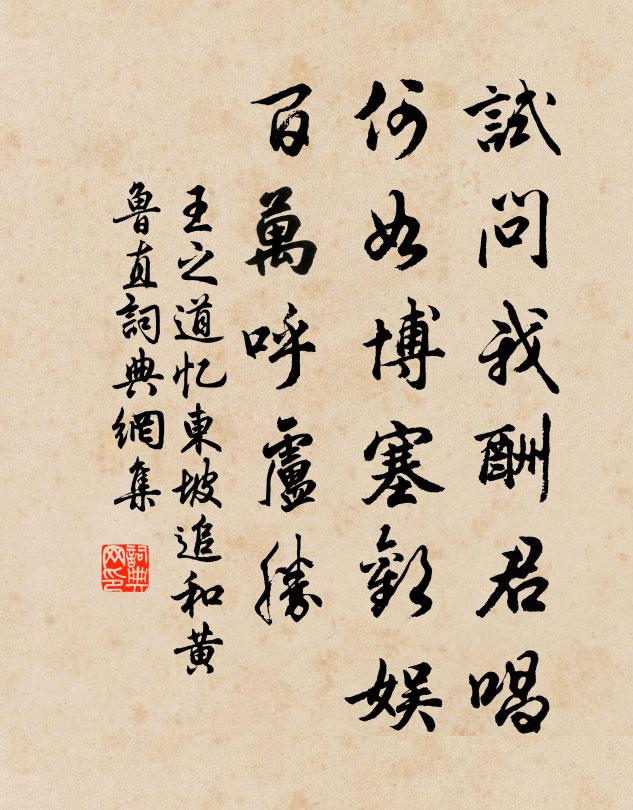 試問我酬君唱
何如博塞歡娛
百萬呼盧勝
王之道忆東坡追和黄
魯直詞典網集
詞典網印